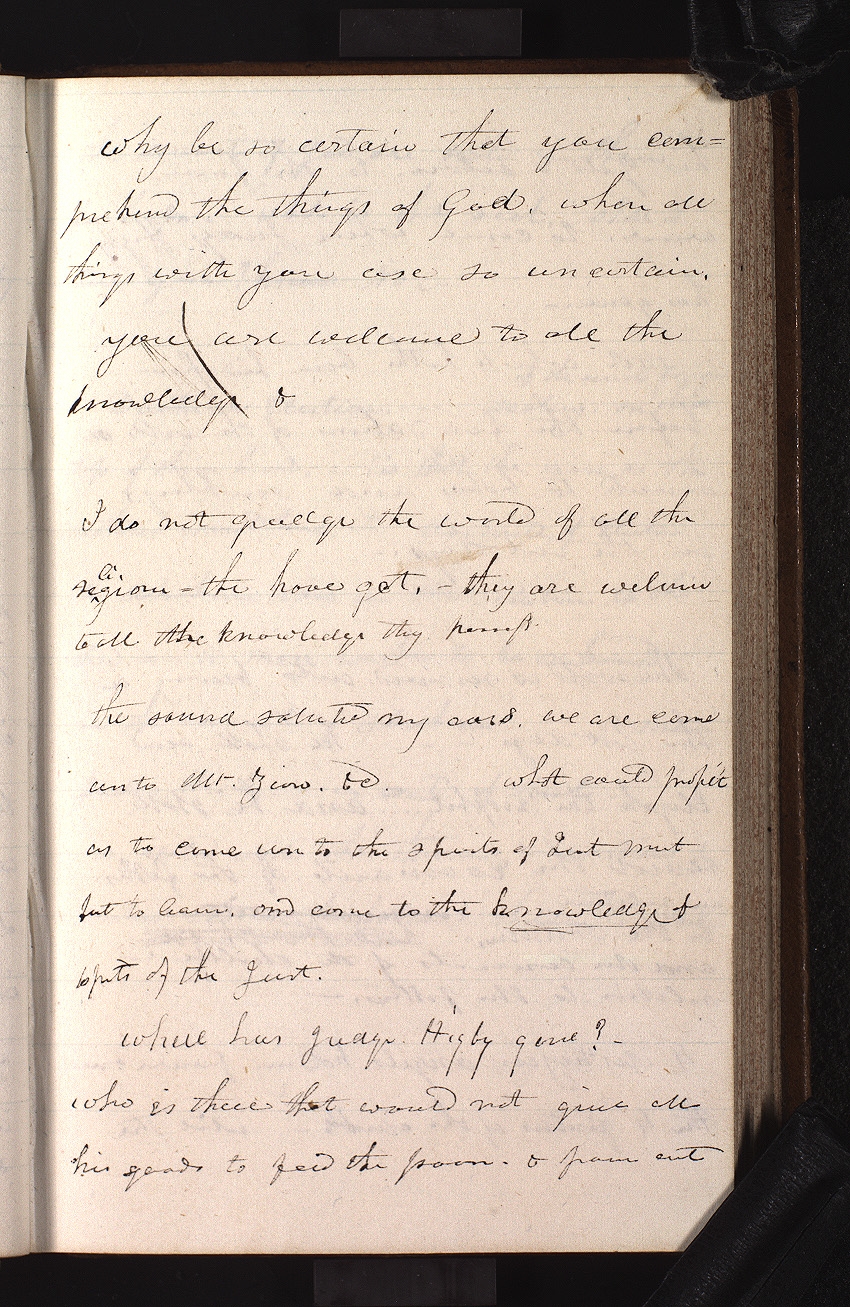 why be so certain that you com=
prehend the things of God. when all
things with you are so uncertain.
you are welcome to all the
knowledge &
I do not grudge the world of all the
religion = the have got. - they are welcome
to all the knowledge they possess.
the sound saluted my ears. we are come
unto Mt. Zion. &c. what could profit
us to come unto the spirits of Just men
but to learn. and come to the knowledge of
spirits of the Just.
where has Judge. Higby gone? -
who is there that would not give all
his goods to feed the poor. & pour out